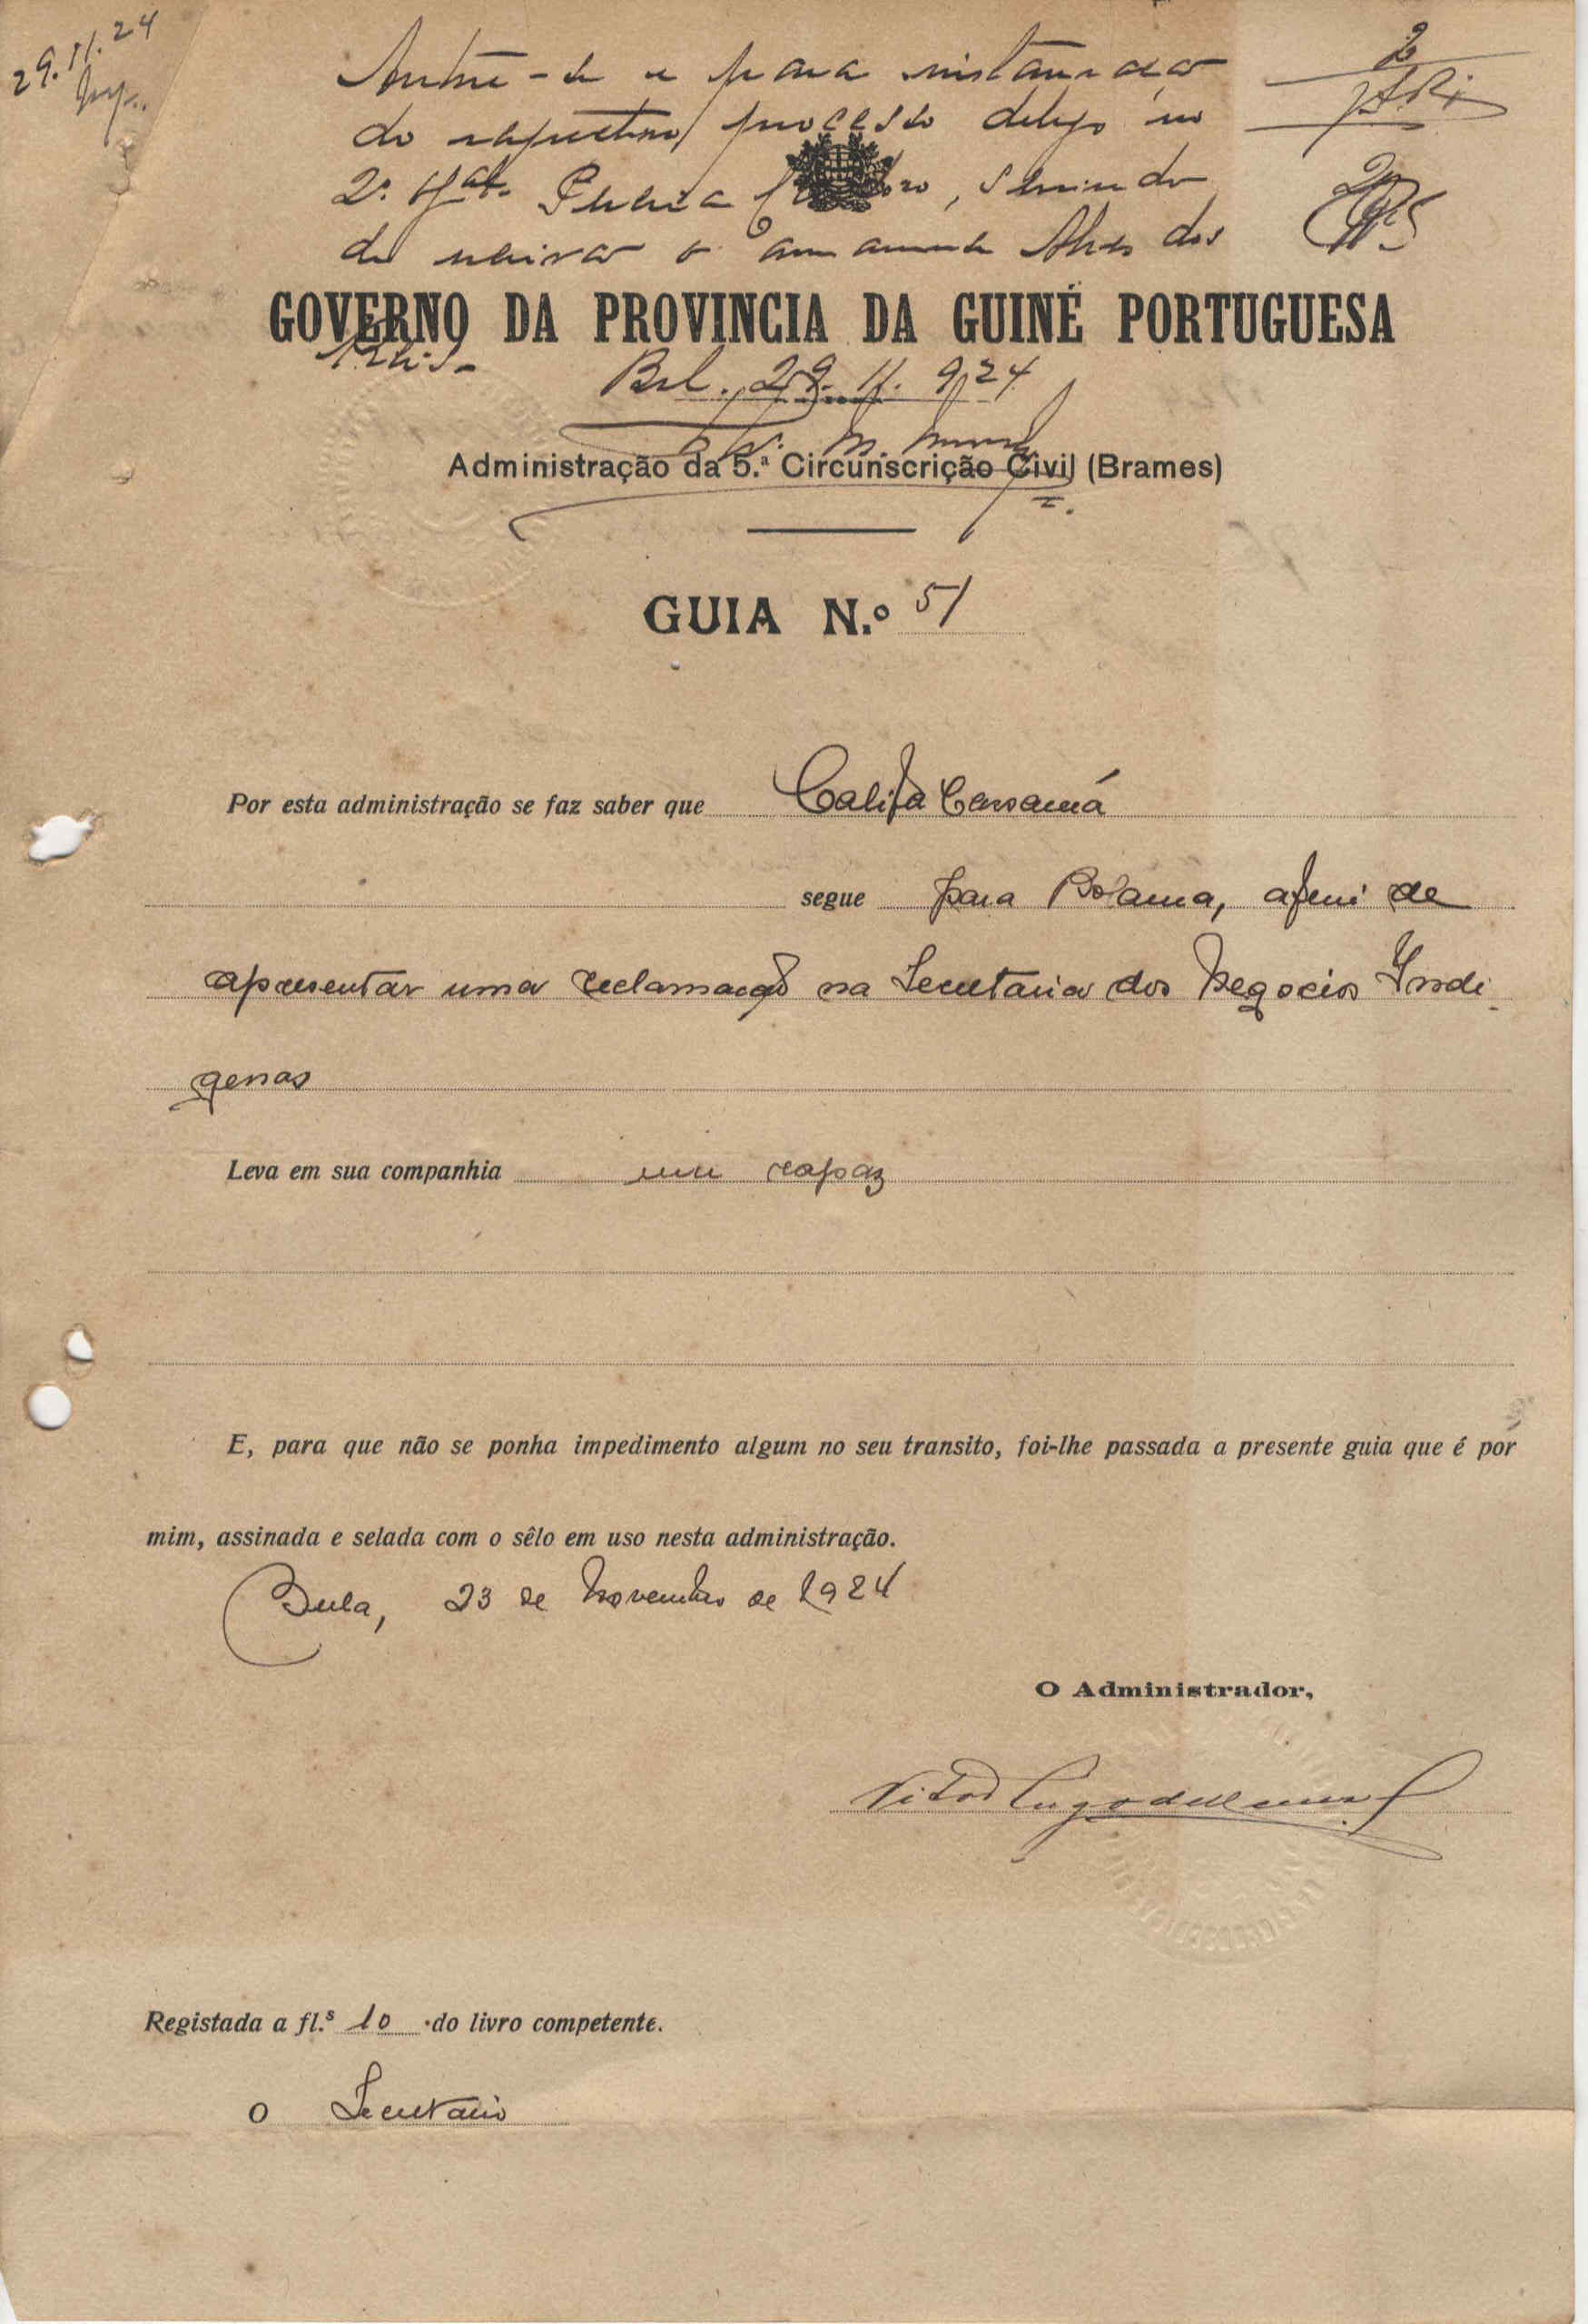 29.11.24
Autue-se e para instauração
do respectivo processo delego no
2º. Of.al. Pereira, servindo
de escrivão o amanuense Alves dos
Reis.
GOVERNO DA PROVINCIA DA GUINÉ PORTUGUESA
Bol., 29. 11. 924
Administração da 5.ª Circunscrição Civil (Brames)
GUIA N.º 51
Por esta administração se faz saber que Califa Cassamá
segue para Bolama, afim de
apresentar uma reclamação na Secretaria dos Negocios Indi
genas
Leva em sua companhia um rapaz
E, para que não se ponha impedimento algum no seu transito, foi-lhe passada a presente guia que é por
mim, assinada e selada com o sêlo em uso nesta administração.
Bula, 23 de Novembro de 1924
O Administrador,
Vitor Hugo de Menezes
Registada a fl.s 10 do livro competente.
O Secretario